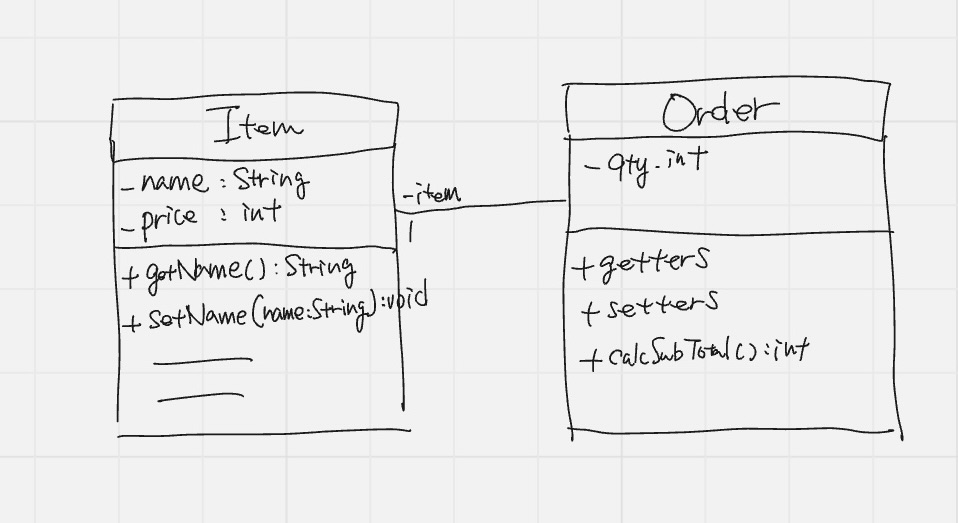 Item
- name : String
- price : int
+ getName() : String
+ setName(name:String) : void
- item
1
Order
- qty . int
+ getters
+ setters
+ calcSubTotal() : int